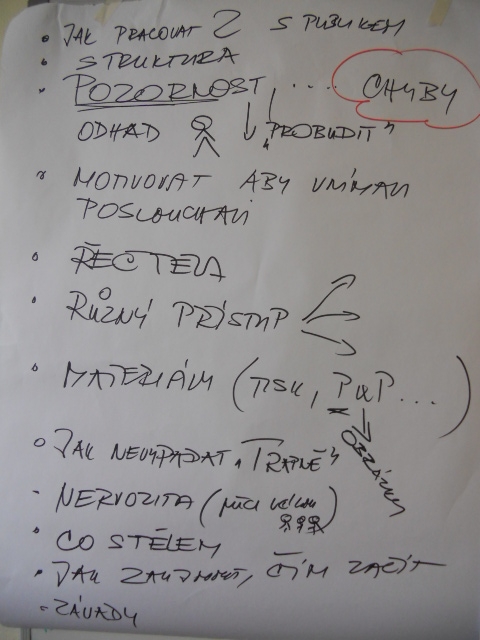 JAK PRACOVAT S PUBLIKEM
STRUKTURA
POZORNOST, .... CHYBY
ODHAD „PROBUDIT"
MOTIVOVAT ABY VNÍMALI
POSLOUCHALI
ŘEČ TĚLA
RŮZNÝ PŘÍSTUP
MATERIÁLY (TISK, PWP...)
OBRÁZKY
JAK NEVYPADAT „TRAPNĚ"
NERVOZITA
CO S TĚLEM
JAK ZAUJMOUT, ČÍM ZAČÍT
ZÁVADY